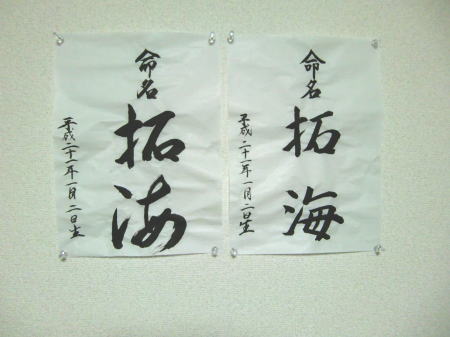 命名
拓海
平成二十一年一月二日生
命名
拓海
平成二十一年一月二日生